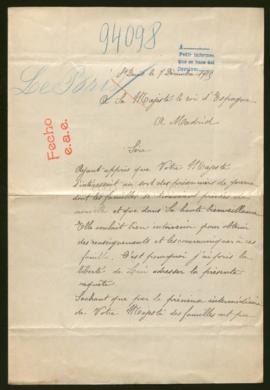 94098
A
Petit informe
que se hace del
Le Paris
St Denis le 7 Décembre
A Sa Majesté le roi d'Espagne
A Madrid
Fecho
e.a.e.
Sire
Ayant appris que Votre Majesté
s'intéressait au sort des prisonniers de guerre
dont les familles se trouvaient privées de
nouvelle et que dans Sa haute bienveillance
Elle voulait bien intervenir pour obtenir
des renseignements et les communiquer à ces
familles. C'est pourquoi j'ai pris la
liberté de Lui adresser la présente
requête
Sachant que par la précieuse intermédiaire
de Votre Majesté des familles ont pu